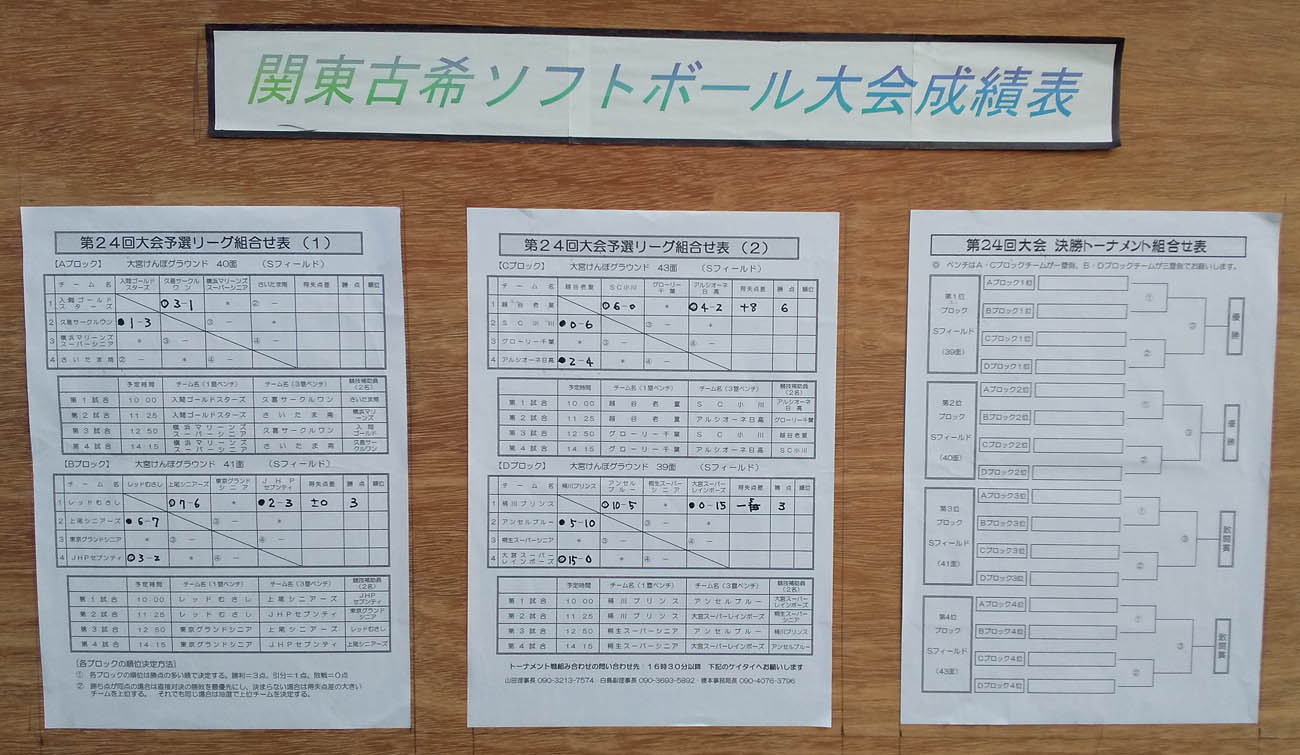 関東古希ソフトボール大会成績表
第24回大会予選リーグ組合せ表 (1)
【Aブロック】 大宮けんぽグラウンド 40面 (Sフィールド)
チーム名 入間ゴールドスターズ 久喜サークルワン 横浜マリーンズスーパーシニア さいたま南 得失点差 勝点 順位
1 入間ゴールドスターズ ○3-1 * ②-
2 久喜サークルワン ●1-3 ③- *
3 横浜マリーンズスーパーシニア * ③- ④-
4 さいたま南 ②- * ④-
予定時間 チーム名(1塁ベンチ) チーム名(3塁ベンチ) 競技補助員(2名)
第1試合 10 00 入間ゴールドスターズ 久喜サークルワン さいたま南
第2試合 11 25 入間ゴールドスターズ さいたま南 横浜マリーンズ
第3試合 12 50 横浜マリーンズスーパーシニア 久喜サークルワン 入間ゴールド
第4試合 14 15 横浜マリーンズスーパーシニア さいたま南 久喜サークルワン
【Bブロック】 大宮けんぽグラウンド 41面 (Sフィールド)
チーム名 レッドむさし 上尾シニアーズ 東京グランドシニア JHPセブンティ 得失点差 勝点 順位
1 レッドむさし ○7-6 * ●2-3 ±0 3
2 上尾シニアーズ ●6-7 ③- *
3 東京グランドシニア * ③- ④-
4 JHPセブンティ ○3-2 * ④-
予定時間 チーム名(1塁ベンチ) チーム名(3塁ベンチ) 競技補助員(2名)
第1試合 10 00 レッドむさし 上尾シニアーズ JHPセブンティ
第2試合 11 25 レッドむさし JHPセブンティ 東京グランドシニア
第3試合 12 50 東京グランドシニア 上尾シニアーズ レッドむさし
第4試合 14 15 東京グランドシニア JHPセブンティ 上尾シニアーズ
(各ブロックの順位決定方法)
① 各ブロックの順位は勝点の多い順で決定する。勝利=3点、引分=1点、敗戦=0点
② 勝ち点が同点の場合は直接対決の勝敗を最優先にし、決まらない場合は得失点差の大きい
チームを上位する。 それでも同じ場合は抽選で上位チームを決定する。
第24回大会予選リーグ組合せ表 (2)
【Cブロック】 大宮けんぽグラウンド 43面 (Sフィールド)
チーム名 越谷老童 SC小川 グローリー千葉 アルシオーネ日高 得失点差 勝点 順位
1 越谷老童 ○6-0 * ○4-2 +8 6
2 SC小川 ●0-6 ③- *
3 グローリー千葉 * ③- ④-
4 アルシオーネ日高 ●2-4 * ④-
予定時間 チーム名(1塁ベンチ) チーム名(3塁ベンチ) 競技補助員(2名)
第1試合 10 00 越谷老童 SC小川 アルシオーネ日高
第2試合 11 25 越谷老童 アルシオーネ日高 グローリー千葉
第3試合 12 50 グローリー千葉 SC小川 越谷老童
第4試合 14 15 グローリー千葉 アルシオーネ日高 SC小川
【Dブロック】 大宮けんぽグラウンド 39面 (Sフィールド)
チーム名 桶川プリンス アンセルブルー 桐生スーパーシニア 大宮スーパーレインボーズ 得失点差 勝点 順位
1 桶川プリンス ○10-5 * ●0-15 3
2 アンセルブルー ●5-10 ③- *
3 桐生スーパーシニア * ③- ④-
4 大宮スーパーレインボーズ ○15-0 * ④-
予定時間 チーム名(1塁ベンチ) チーム名(3塁ベンチ) 競技補助員(2名)
第1試合 10 00 桶川プリンス アンセルブルー 大宮スーパーレインボーズ
第2試合 11 25 桶川プリンス 大宮スーパーレインボーズ 桐生スーパーシニア
第3試合 12 50 桐生スーパーシニア アンセルブルー 桶川プリンス
第4試合 14 15 桐生スーパーシニア 大宮スーパーレインボーズ アンセルブルー
トーナメント戦組み合わせの問い合わせ先:16時30分以降 下記のケイタイへお願いします
山田理事長 090-3213-7574 白鳥副理事長 090-3693-5892・榎本事務局長 090-4076-3796
第24回大会 決勝トーナメント組合せ表
◎ ベンチはA・Cブロックチームが一塁側、B・Dブロックチームが三塁側でお願いします。
第1位 ブロック Sフィールド (39面)
Aブロック1位
Bブロック1位
Cブロック1位
Dブロック1位
① ② ③ 優勝
第2位 ブロック Sフィールド (40面)
Aブロック2位
Bブロック2位
Cブロック2位
Dブロック2位
① ② ③ 優勝
第3位 ブロック Sフィールド (41面)
Aブロック3位
Bブロック3位
Cブロック3位
Dブロック3位
① ② ③ 敢闘賞
第4位 ブロック Sフィールド (43面)
Aブロック4位
Bブロック4位
Cブロック4位
Dブロック4位
① ② ③ 敢闘賞